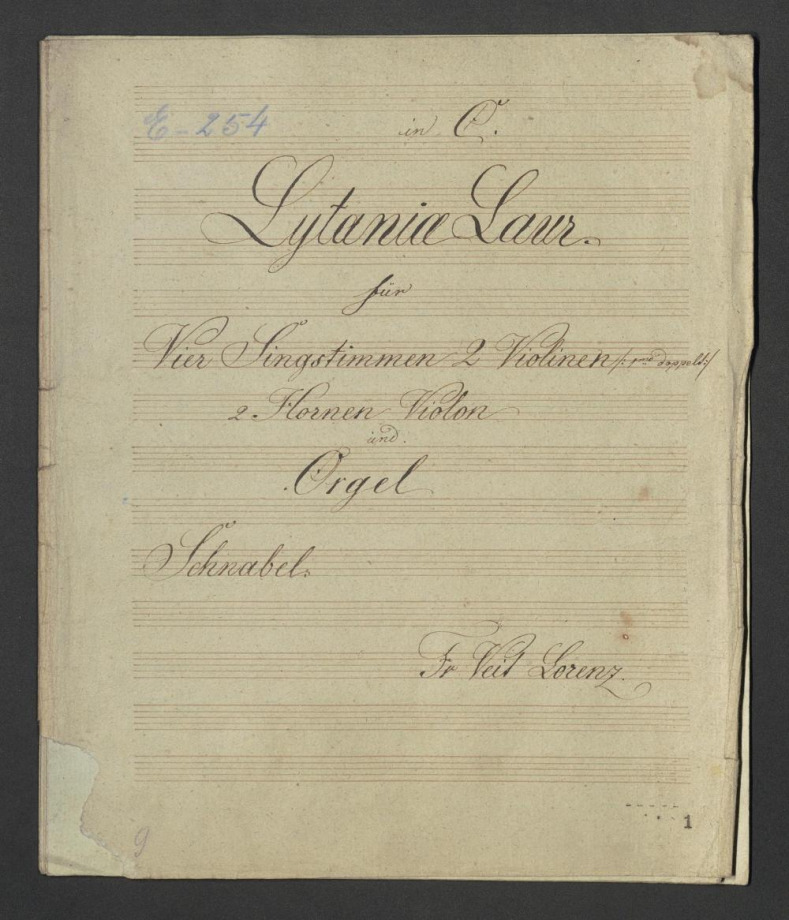 E-254
in C.
Lytaniæ Laur.
für
Vier Singstimmen 2 Violinen /: 1mo doppelt:/
2. Hornen Violon
und.
Orgel
Schnabel.
Fr Veit Lorenz.
1
9